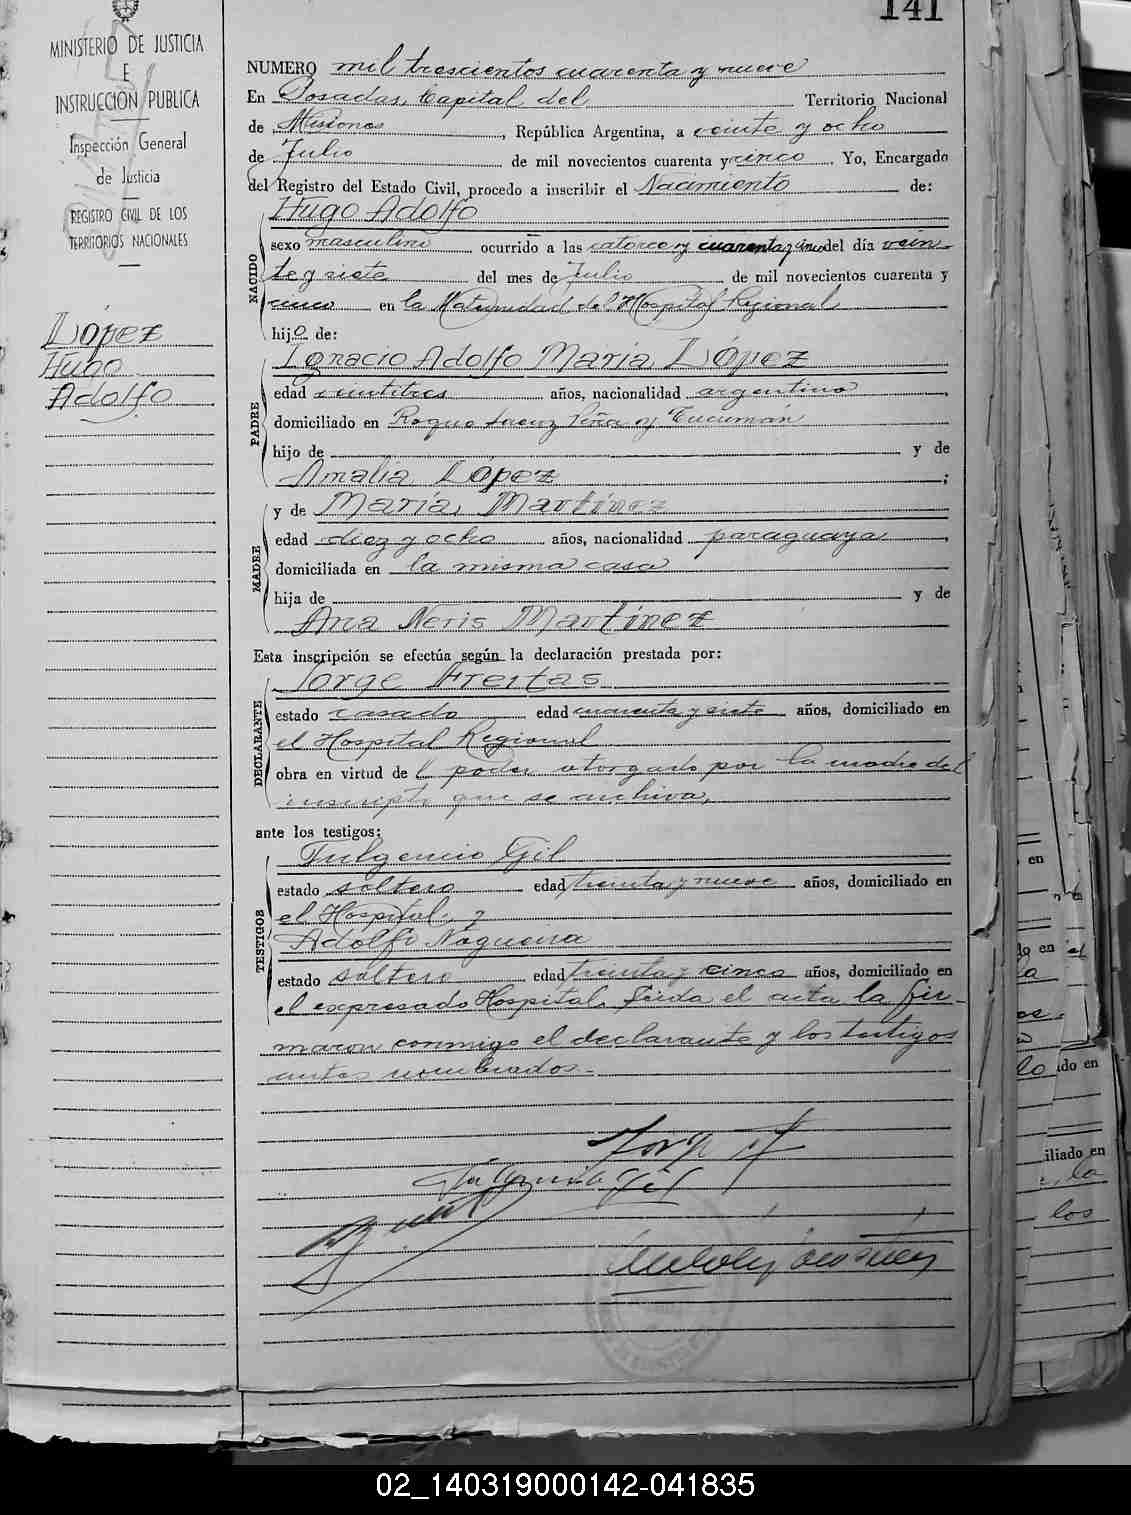 141
MINISTERIO DE JUSTICIA
E
INSTRUCCIÓN PUBLICA
Inspección General
de Justicia
REGISTRO CIVIL DE LOS
TERRITORIOS NACIONALES
López
Hugo
Adolfo
NUMERO mil trescientos cuarenta y nueve
En Posadas, Capital del Territorio Nacional
de Misiones, República Argentina, a veinte y ocho
de Julio de mil novecientos cuarenta y cinco. Yo, Encargado
del Registro del Estado Civil, procedo a inscribir el Nacimiento de:
Hugo Adolfo
NACIDO
sexo masculino ocurrido a las catorce y cuarenta y cinco del día vein-
te y siete del mes de Julio de mil novecientos cuarenta y
cinco en la Maternidad del Hospital Regional
hijo de:
Ignacio Adolfo María López
PADRE
edad veintitres años, nacionalidad argentino,
domiciliado en Roque Saenz Peña y Tucumán
hijo de y de
Amalia López;
y de María Martínez
MADRE
edad diez y ocho años, nacionalidad paraguaya,
domiciliada en la misma casa
hija de y de
Ana Neris Martínez
Esta inscripción se efectúa según la declaración prestada por:
Jorge Freitas
DECLARANTE
estado casado edad cuarenta y siete años, domiciliado en
el Hospital Regional
obra en virtud del poder otorgado por la madre del
inscripto que se archiva,
ante los testigos:
Fulgencio Gil
TESTIGOS
estado soltero edad treinta y nueve años, domiciliado en
el Hospital, y
Adolfo Nogueira
estado soltero edad treinta y cinco años, domiciliado en
el expresado Hospital. Leída el acta la fir-
maron conmigo el declarante y los testigos
antes nombrados.-
Fulgencio Gil
en
do en el
ido en
iliado en
la
los
02_140319000142-041835